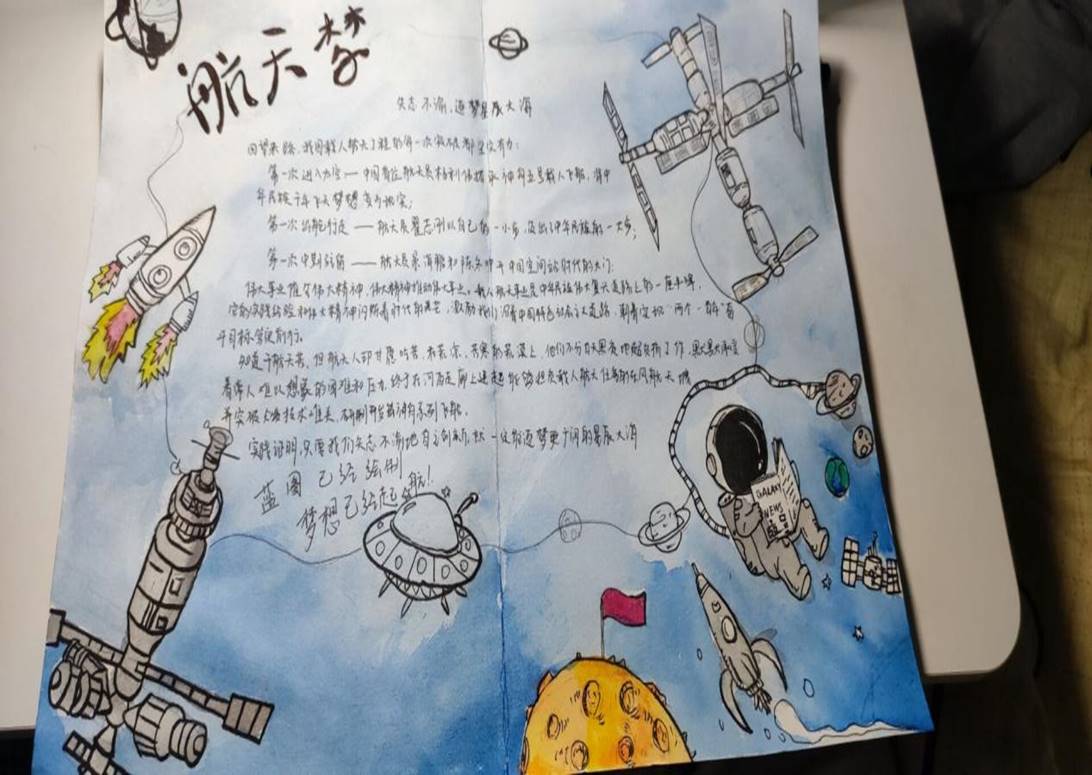 航天梦
矢志不渝,逐梦星辰大海
回望来路,我国载人航天工程的每一次突破都坚实有力:
第一次进入太空——中国首位航天员杨利伟搭乘神舟五号载人飞船,将中
华民族千年飞天梦想变为现实;
第一次出舱行走——航天员翟志刚以自己的一小步,迈出了中华民族的一大步;
第一次中期驻留——航天员景海鹏和陈冬叩开中国空间站时代的大门;
伟大事业孕育伟大精神,伟大精神推动伟大事业。载人航天事业是中华民族伟大复兴道路上的一座丰碑,
宝贵的实践经验和伟大精神闪烁着时代的光芒,激励我们沿着中国特色社会主义道路,朝着实现“两个一百年”奋
斗目标奋勇前行。
知道干航天苦,但航天人却甘愿吃苦,在苦寒的荒漠上,他们不分白天黑夜地超负荷工作,
着常人难以想象的困难和压力,终于在河西走廊上建起能够担负载人航天任务的东风航天城
并突破大量技术难关,研制开发神舟系列飞船。
实践证明,只要我们矢志不渝地自主创新,就一定能逐梦更广阔的星辰大海
蓝图已经绘制
梦想已经起航!
GALAXY
NEWS